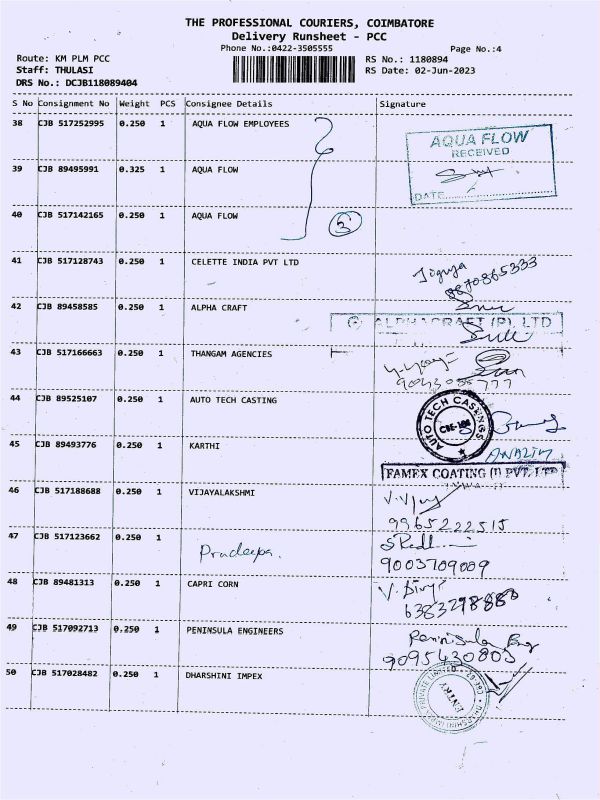 THE PROFESSIONAL COURIERS, COIMBATORE
Delivery Runsheet - PCC
Phone No.:0422-3505555 Page No.:4
Route: KM PLM PCC RS No.: 1180894
Staff: THULASI RS Date: 02-Jun-2023
DRS No.: DCJB118089404
S No Consignment No Weight PCS Consignee Details Signature
38 CJB 517252995 0.250 1 AQUA FLOW EMPLOYEES
AQUA FLOW
RECEIVED
39 CJB 89495991 0.325 1 AQUA FLOW
DATE
40 CJB 517142165 0.250 1 AQUA FLOW
41 CJB 517128743 0.250 1 CELETTE INDIA PVT LTD
8870865333
42 CJB 89458585 0.250 1 ALPHA CRAFT
ALPHA CRAFT (P). LTD
43 CJB 517166663 0.250 1 THANGAM AGENCIES
44 CJB 89525107 0.250 1 AUTO TECH CASTING
AUTO TECH CASINGS
45 CJB 89493776 0.250 1 KARTHI
FAMEX COATING (I) PVT. LTD
46 CJB 517188688 0.250 1 VIJAYALAKSHMI
9965222515
47 CJB 517123662 0.250 1 Pradeepa.
9003709009
48 CJB 89481313 0.250 1 CAPRI CORN
49 CJB 517092713 0.250 1 PENINSULA ENGINEERS
Peninsula Eng
9095430803
50 CJB 517028482 0.250 1 DHARSHINI IMPEX
DHARSHINI IMPEX PRIVATE LIMITED
ENTRY